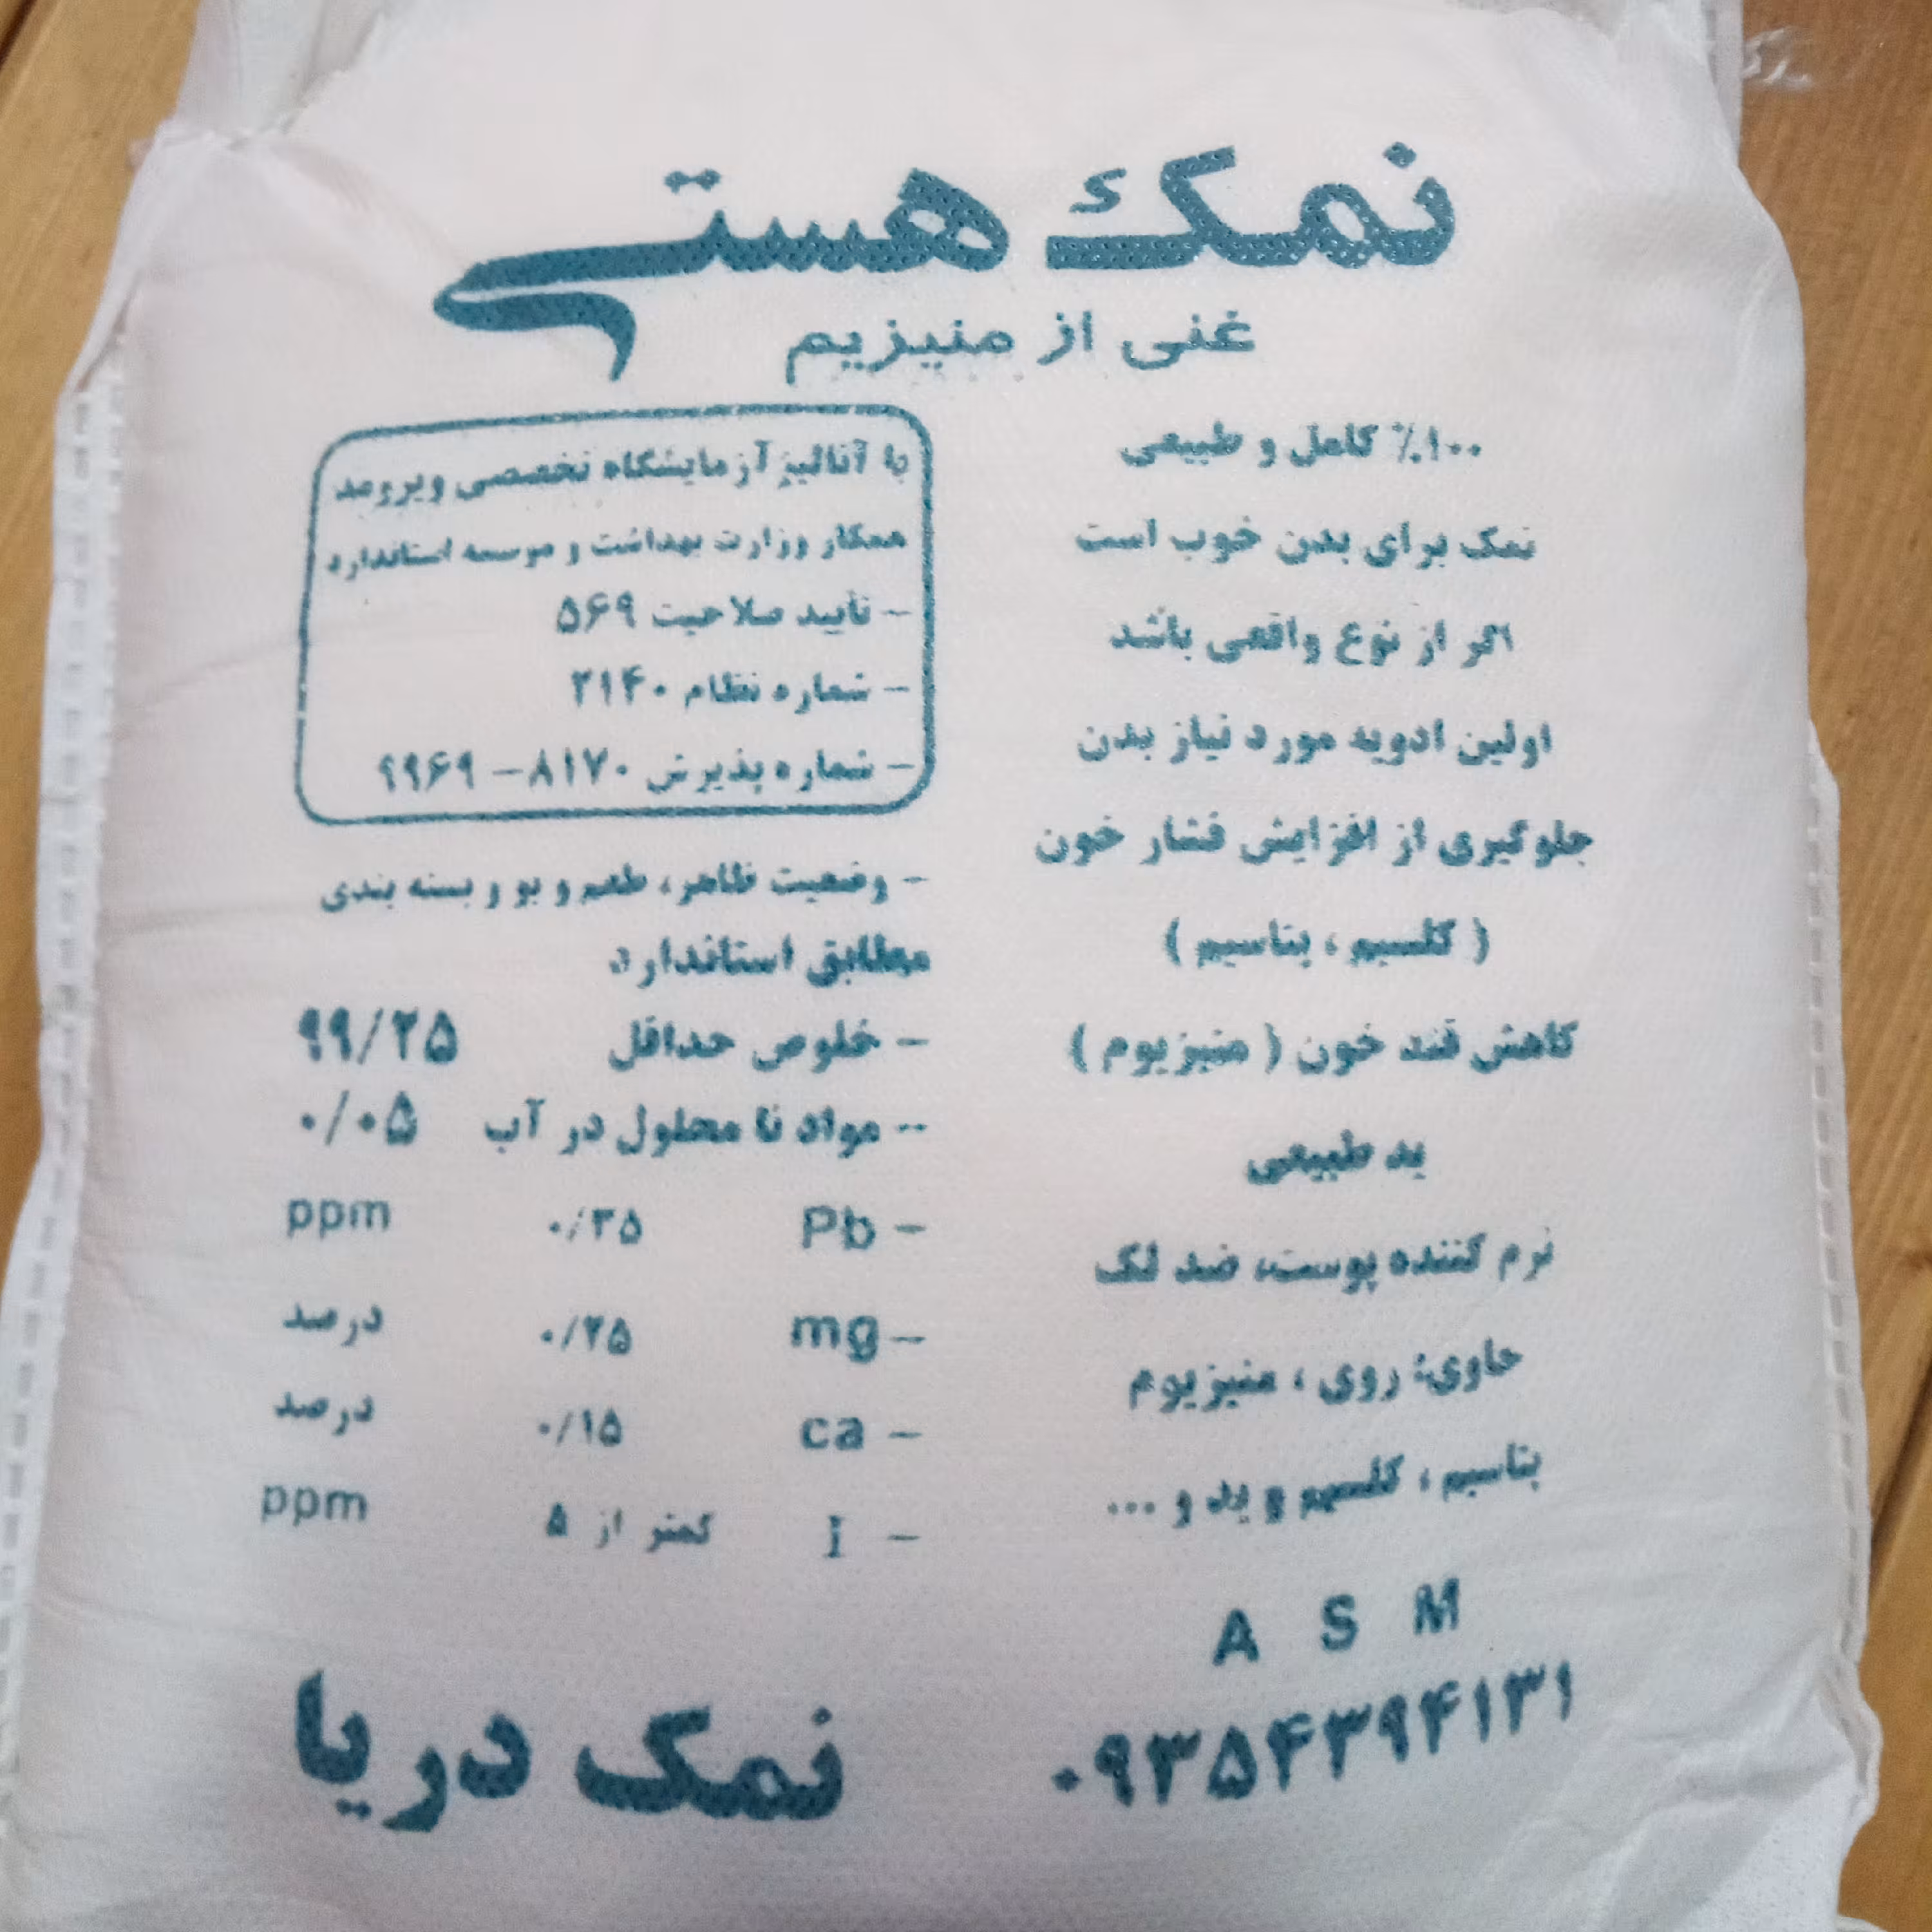 نمک هستی
غنی از منیزیم
۱۰۰٪ کامل و طبیعی
نمک برای بدن خوب است
اگر از نوع واقعی باشد
اولین ادویه مورد نیاز بدن
جلوگیری از افزایش فشار خون
( کلسیم ، پتاسیم )
کاهش قند خون ( منیزیوم )
ید طبیعی
نرم کننده پوست، ضد لک
حاوی: روی ، منیزیوم
پتاسیم ، کلسیم و ید و ...
A S M
۰۹۳۵۴۳۹۴۱۳۱
با آنالیز آزمایشگاه تخصصی ویرومد
همکار وزارت بهداشت و موسسه استاندارد
- تأیید صلاحیت ۵۶۹
- شماره نظام ۲۱۴۰
- شماره پذیرش ۸۱۷۰ - ۹۹۶۹
- وضعیت ظاهر، طعم و بو و بسته بندی
مطابق استاندارد
- خلوص حداقل ۹۹/۲۵
-- مواد نا محلول در آب ۰/۰۵
- Pb ۰/۳۵ ppm
- mg ۰/۲۵ درصد
- ca ۰/۱۵ درصد
- I کمتر از ۵ ppm
نمک دریا